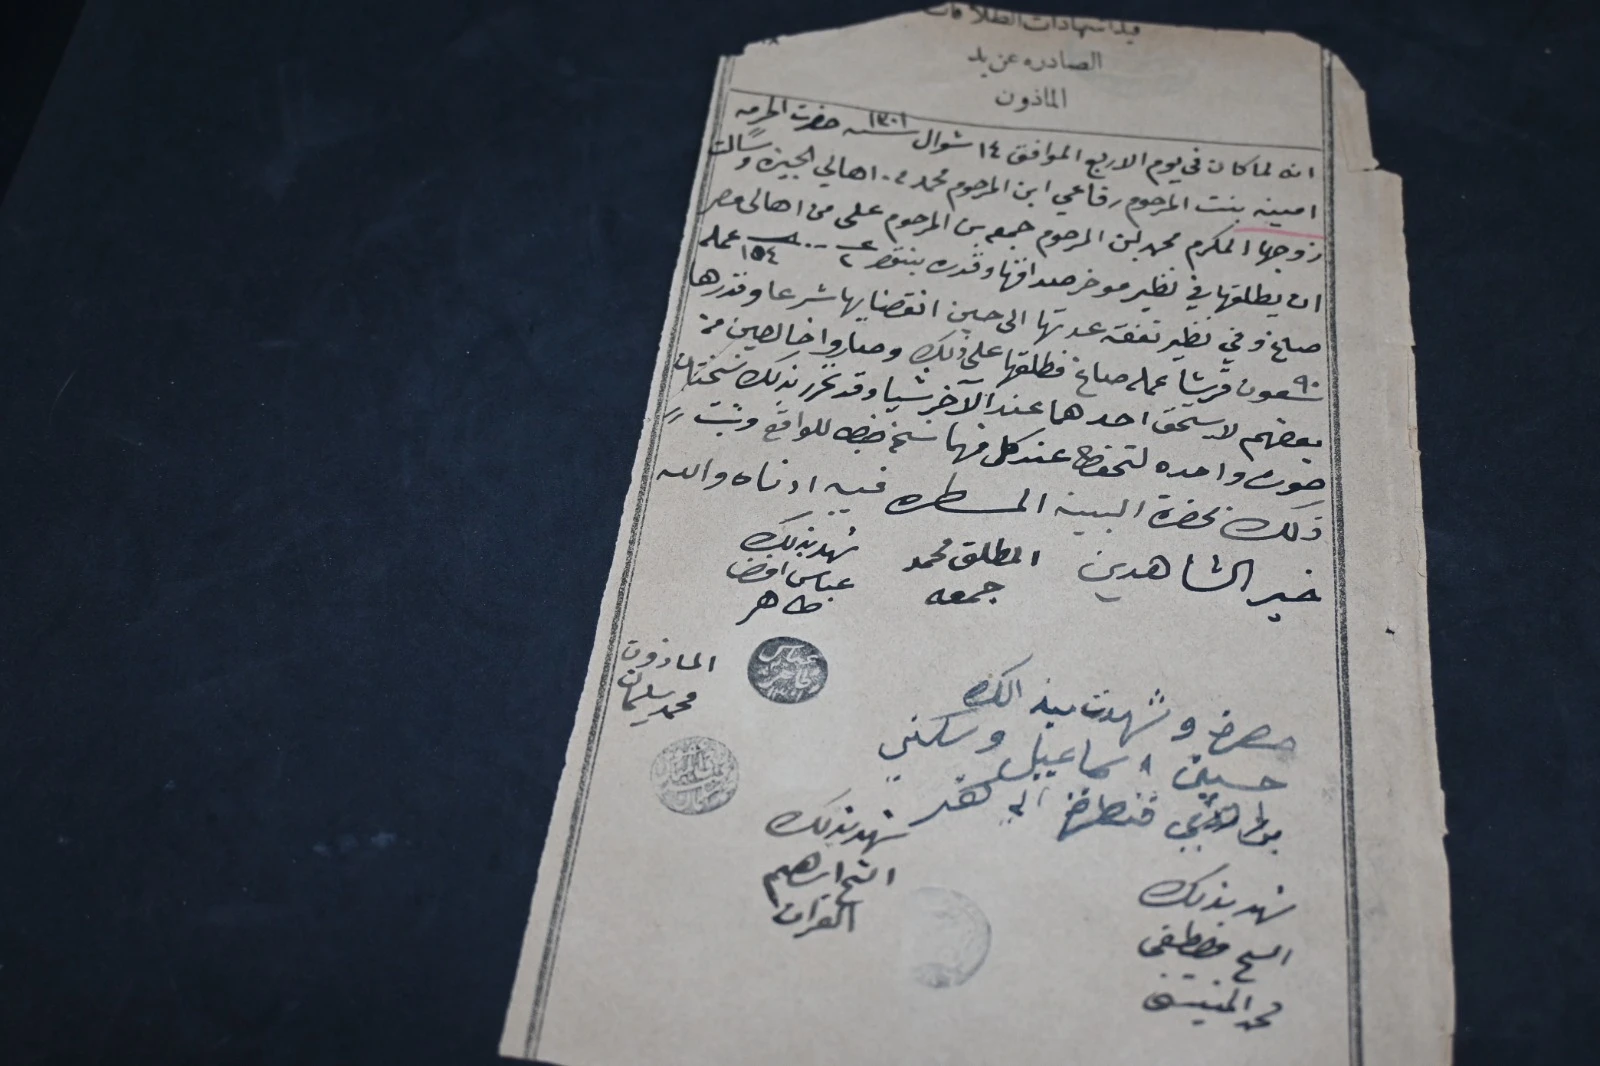 قيد اشهادات الطلاقات
الصادره عن يد
المأذون
انه لما كان في يوم الاربع الموافق ١٤ شوال سنه ١٣٠١ حضرت الحرمه
امينه بنت المرحوم رفاعي ابن المرحوم محمد من اهالي الجيزه وسالت
زوجها المكرم محمد بن المرحوم جمعه بن المرحوم على من اهالى مصر
ان يطلقها في نظير موخر صداقها وقدره ١٥٤ عمله
صاغ وفي نظير نفقة عدتها الى حين انقضايها شرعا وقدرها
٩٠ تسعون قرشا عمله صاغ فطلقها على ذلك وصاروا خالصين من
بعضهم لا يستحق احدهما عند الآخر شيا وقد تحرر بذلك نسختان
صورة واحده لتحفظ عند كل منهما للواقع وثبت
ذلك بحضرة البينه المسطره فيه ادناه والله
خير الشاهدين
المطلق محمد
جمعه
شهد بذلك
عباس
طاهر
المأذون
محمد سليمان
حضرة وشهدت بذالك
حسين اسماعيل وسكني
شهد بذلك
الشيخ ابراهيم
شهد بذلك
الشيخ مصطفى
محمد